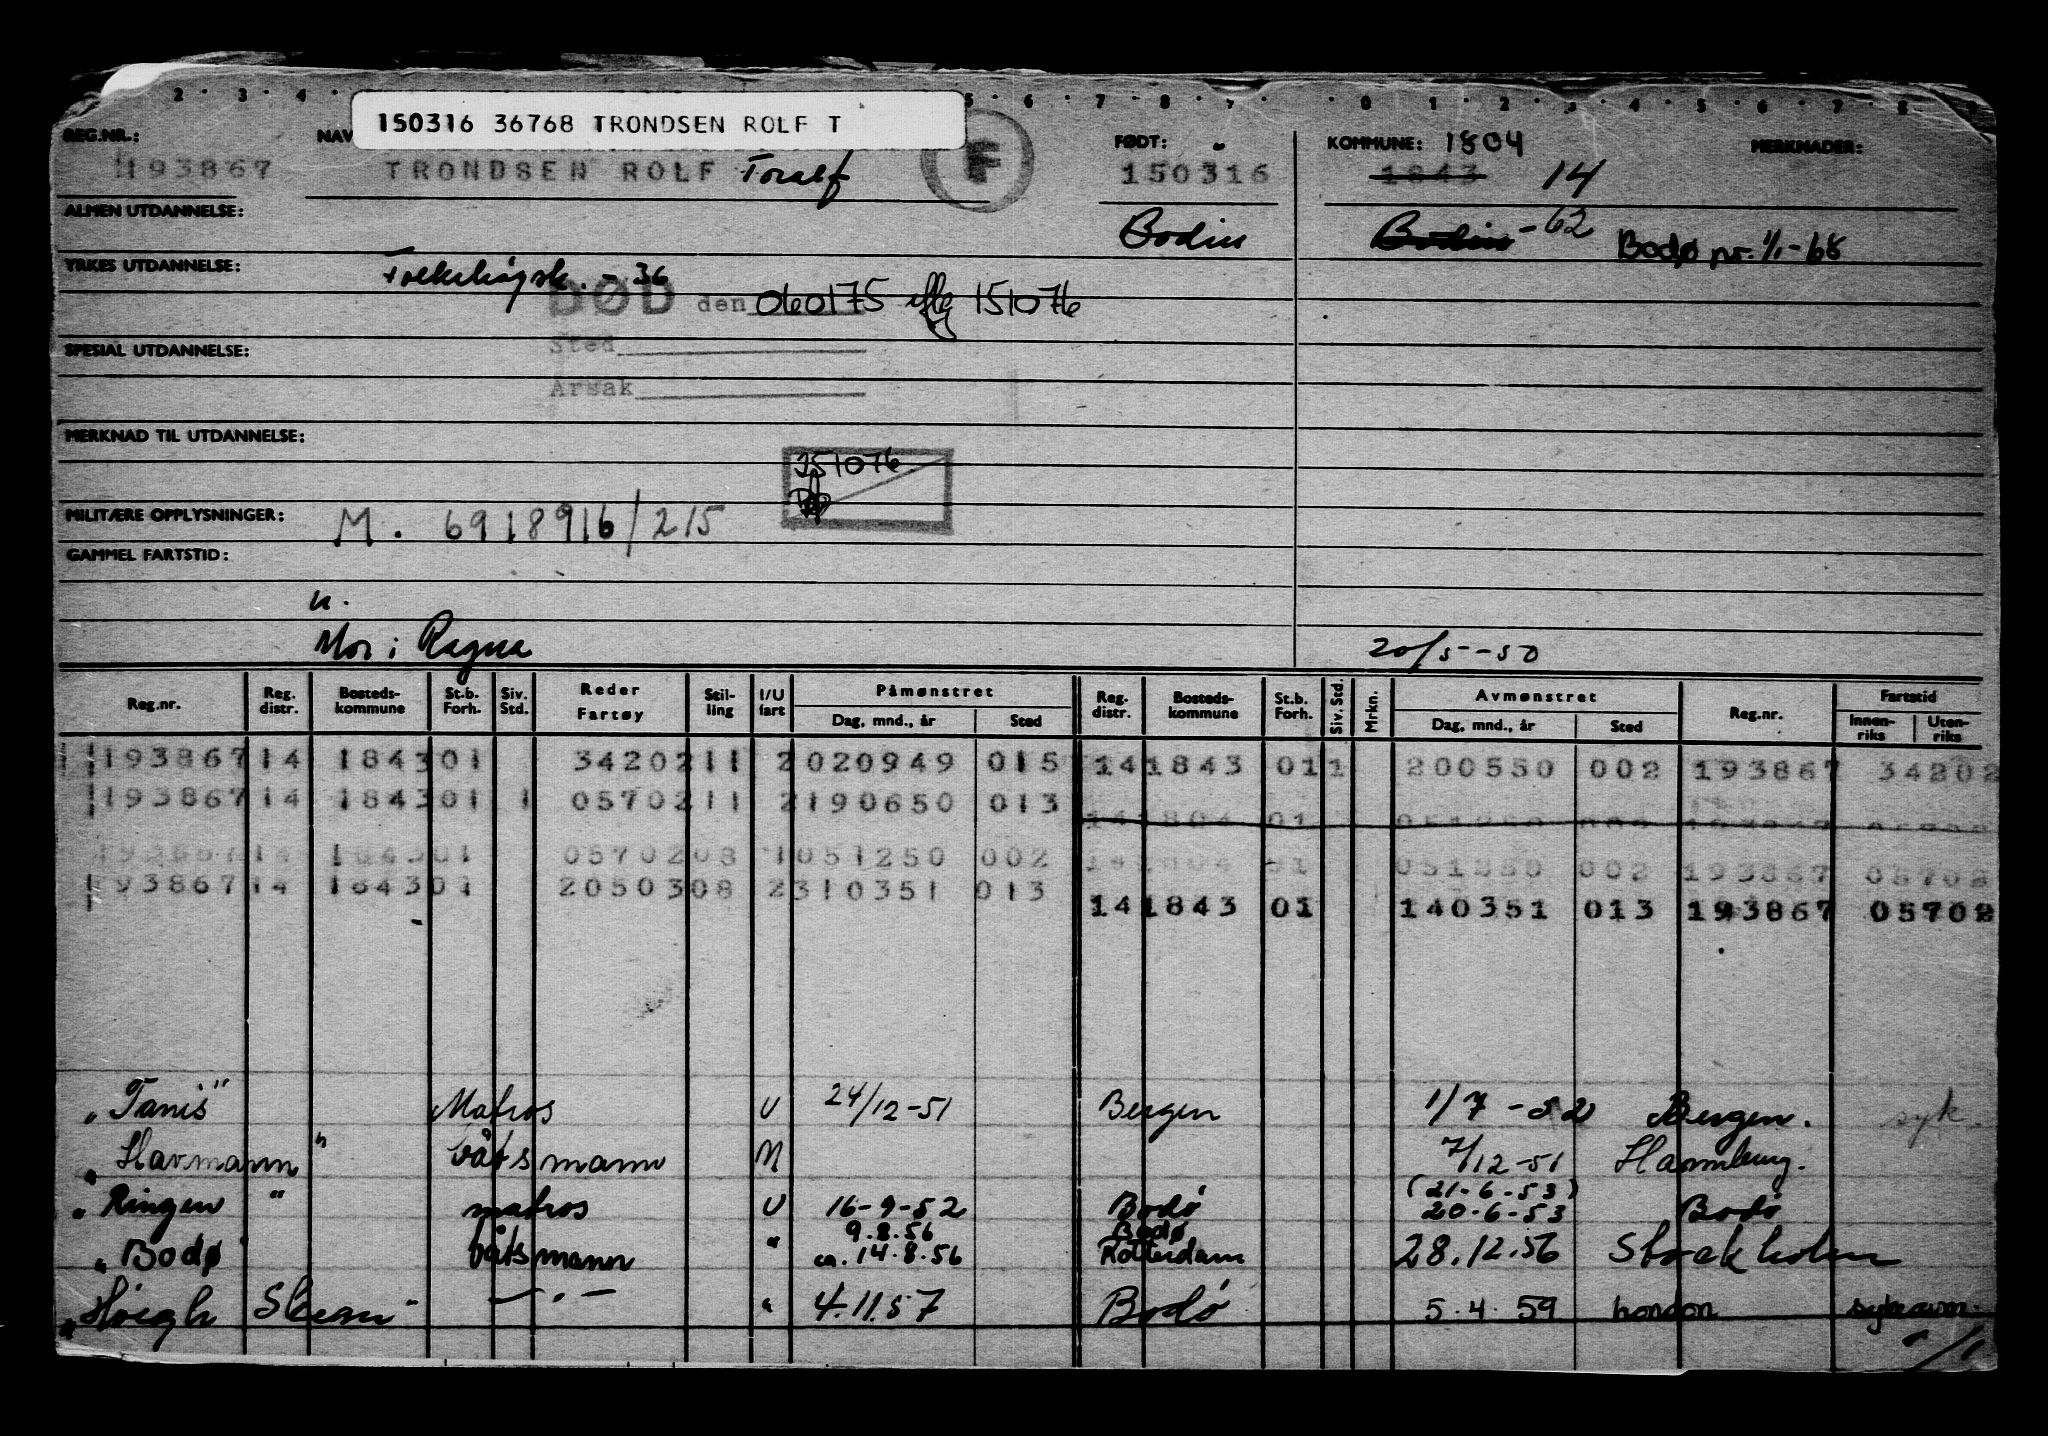 2 · 3 · 4 · 5 · 6 · 7 · 8 · 0 1 2 3 4 5 6 7 8 9
150316 36768 TRONDSEN ROLF T
REG.NR.: NAV FØDT: KOMMUNE: 1804 MERKNADER:
193867 TRONDSEN ROLF Toralf F 150316 1843 14
ALMEN UTDANNELSE: Bodin Bodin -62 Bodø pr. 1/1-68
YRKES UTDANNELSE: Folkehøgsk. - 36
DØD den 060175 iflg 151076
Sted
SPESIAL UTDANNELSE:
Årsak
MERKNAD TIL UTDANNELSE:
151076
MILITÆRE OPPLYSNINGER: M. 6918916/215
GAMMEL FARTSTID:
u.
Mor: Ragna 20/5-50
Reg.nr. Reg. distr. Bosteds-kommune St.b. Forh. Siv. Std. Reder Fartøy Stil-ling I/U fart Påmønstret Dag, mnd., år Sted Reg. distr. Bosteds-kommune St.b. Forh. Siv. Std. Mrkn. Avmønstret Dag, mnd., år Sted Reg.nr. Fartstid Innen-riks Uten-riks
193867 14 1843 01 34202 11 2 020949 015 14 1843 01 1 200550 002 193867 34202
193867 14 1843 01 1 05702 11 2 190650 013
14 1804 01 051250 002 193867 05702
193867 14 1843 01 05702 08 1 051250 002 14 1804 01 051250 002 193867 05702
193867 14 1843 01 20503 08 2 310351 013
14 1843 01 140351 013 193867 05702
„Tanis" Matros U 24/12-51 Bergen 1/7-52 Bergen. syk.
„Havmann" båtsmann 7/12-51 Hamburg.
„Ringen" matros U 16-9-52 Bodø (21-6-53) 20-6-53 Bodø
„Bodø" båtsmann " 9.8.56 ca. 14.8.56 Bodø Rotterdam 28.12.56 Stockholm
„Höegh — . — " 4.11.57 Bodø 5.4.59 London